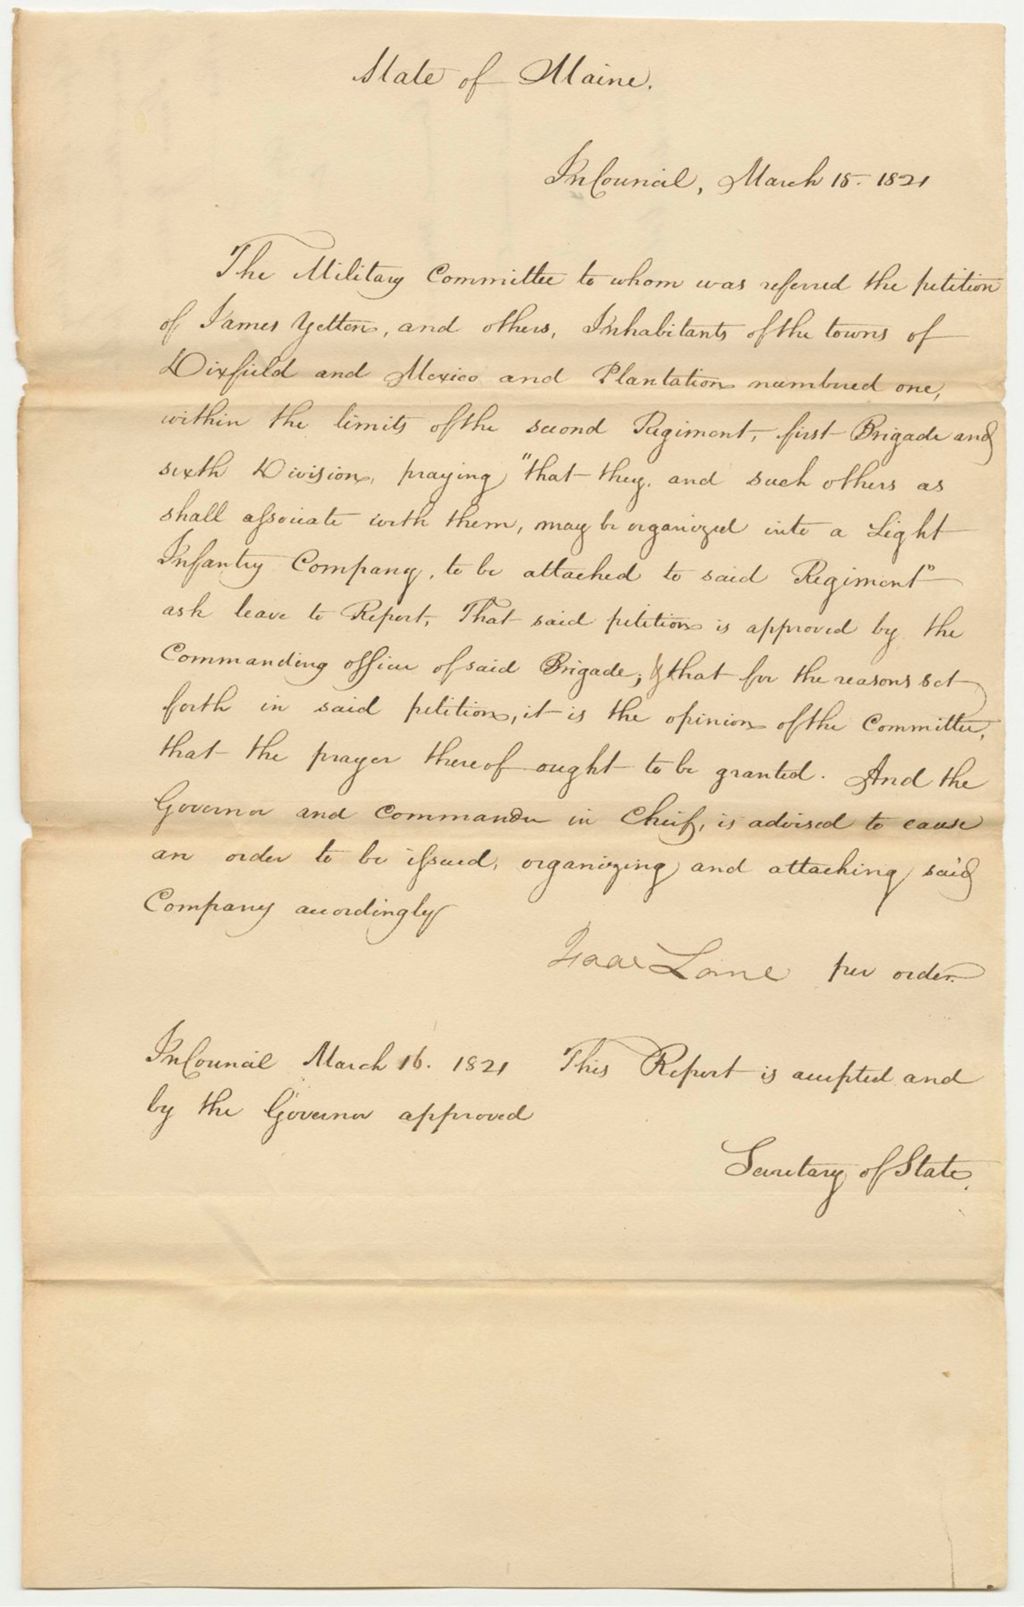 State of Maine.
In Council, March 15. 1821
The Military Committee to whom was referred the petition
of James Yetten, and others, Inhabitants of the towns of
Dixfield and Mexico and Plantation numbered one,
within the limits of the second Regiment, first Brigade and
sixth Division, praying "that they, and such others as
shall associate with them, may be organized into a Light
Infantry Company, to be attached to said Regiment"
ask leave to Report, That said petition is approved by the
Commanding officer of said Brigade, & that for the reasons set
forth in said petition, it is the opinion of the Committee,
that the prayer thereof ought to be granted. And the
Governor and Commander in Cheif, is advised to cause
an order to be issued, organizing and attaching said
Company accordingly
Isaac Lane per order.
In Council March 16. 1821 This Report is accepted and
by the Governor approved
Secretary of State.